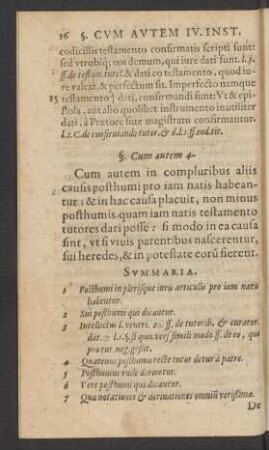 26 §. CVM AVTEM IV. INST.
codicillis testamento confirmatis scripti sunt:
sed vtrobiq; eos demum, qui iure dati sunt. l.3.
ff. de testam. tutel. & dati eo testamento, quod iu-
re valeat, & perfectum sit. Imperfecto namque
15 testamento † dati, confirmandi sunt: Vt & epi-
stola, aut alio quolibet instrumento inutiliter
dati, à Prætore siue magistratu confirmantur.
l.2. C. de confirmando tutor. & d.l.1. ff. eod. tit.
§. Cum autem 4.
Cum autem in compluribus aliis
causis posthumi pro iam natis habean-
tur: & in hac causa placuit, non minus
posthumis quam iam natis testamento
tutores dari posse: si modo in ea causa
sint, vt si viuis parentibus nascerentur,
sui heredes, & in potestate eorū fierent.
SVMMARIA.
1 Posthumi in plerisque iuris articulis pro iam natis
habentur.
2 Sui posthumi qui dicantur.
3 Intellectus l. ventri. 20. ff. de tutorib. & curator.
dat. & l.1. §. si quis. vers. simili modo. ff. de eo, qui
pro tut. neg. gessit.
4 Quatenus posthumo recte tutor detur à patre.
5 Posthumus vnde deriuetur.
6 Vere posthumi qui dicantur.
7 Quæ notationes & deriuationes omniū verissimæ.
De